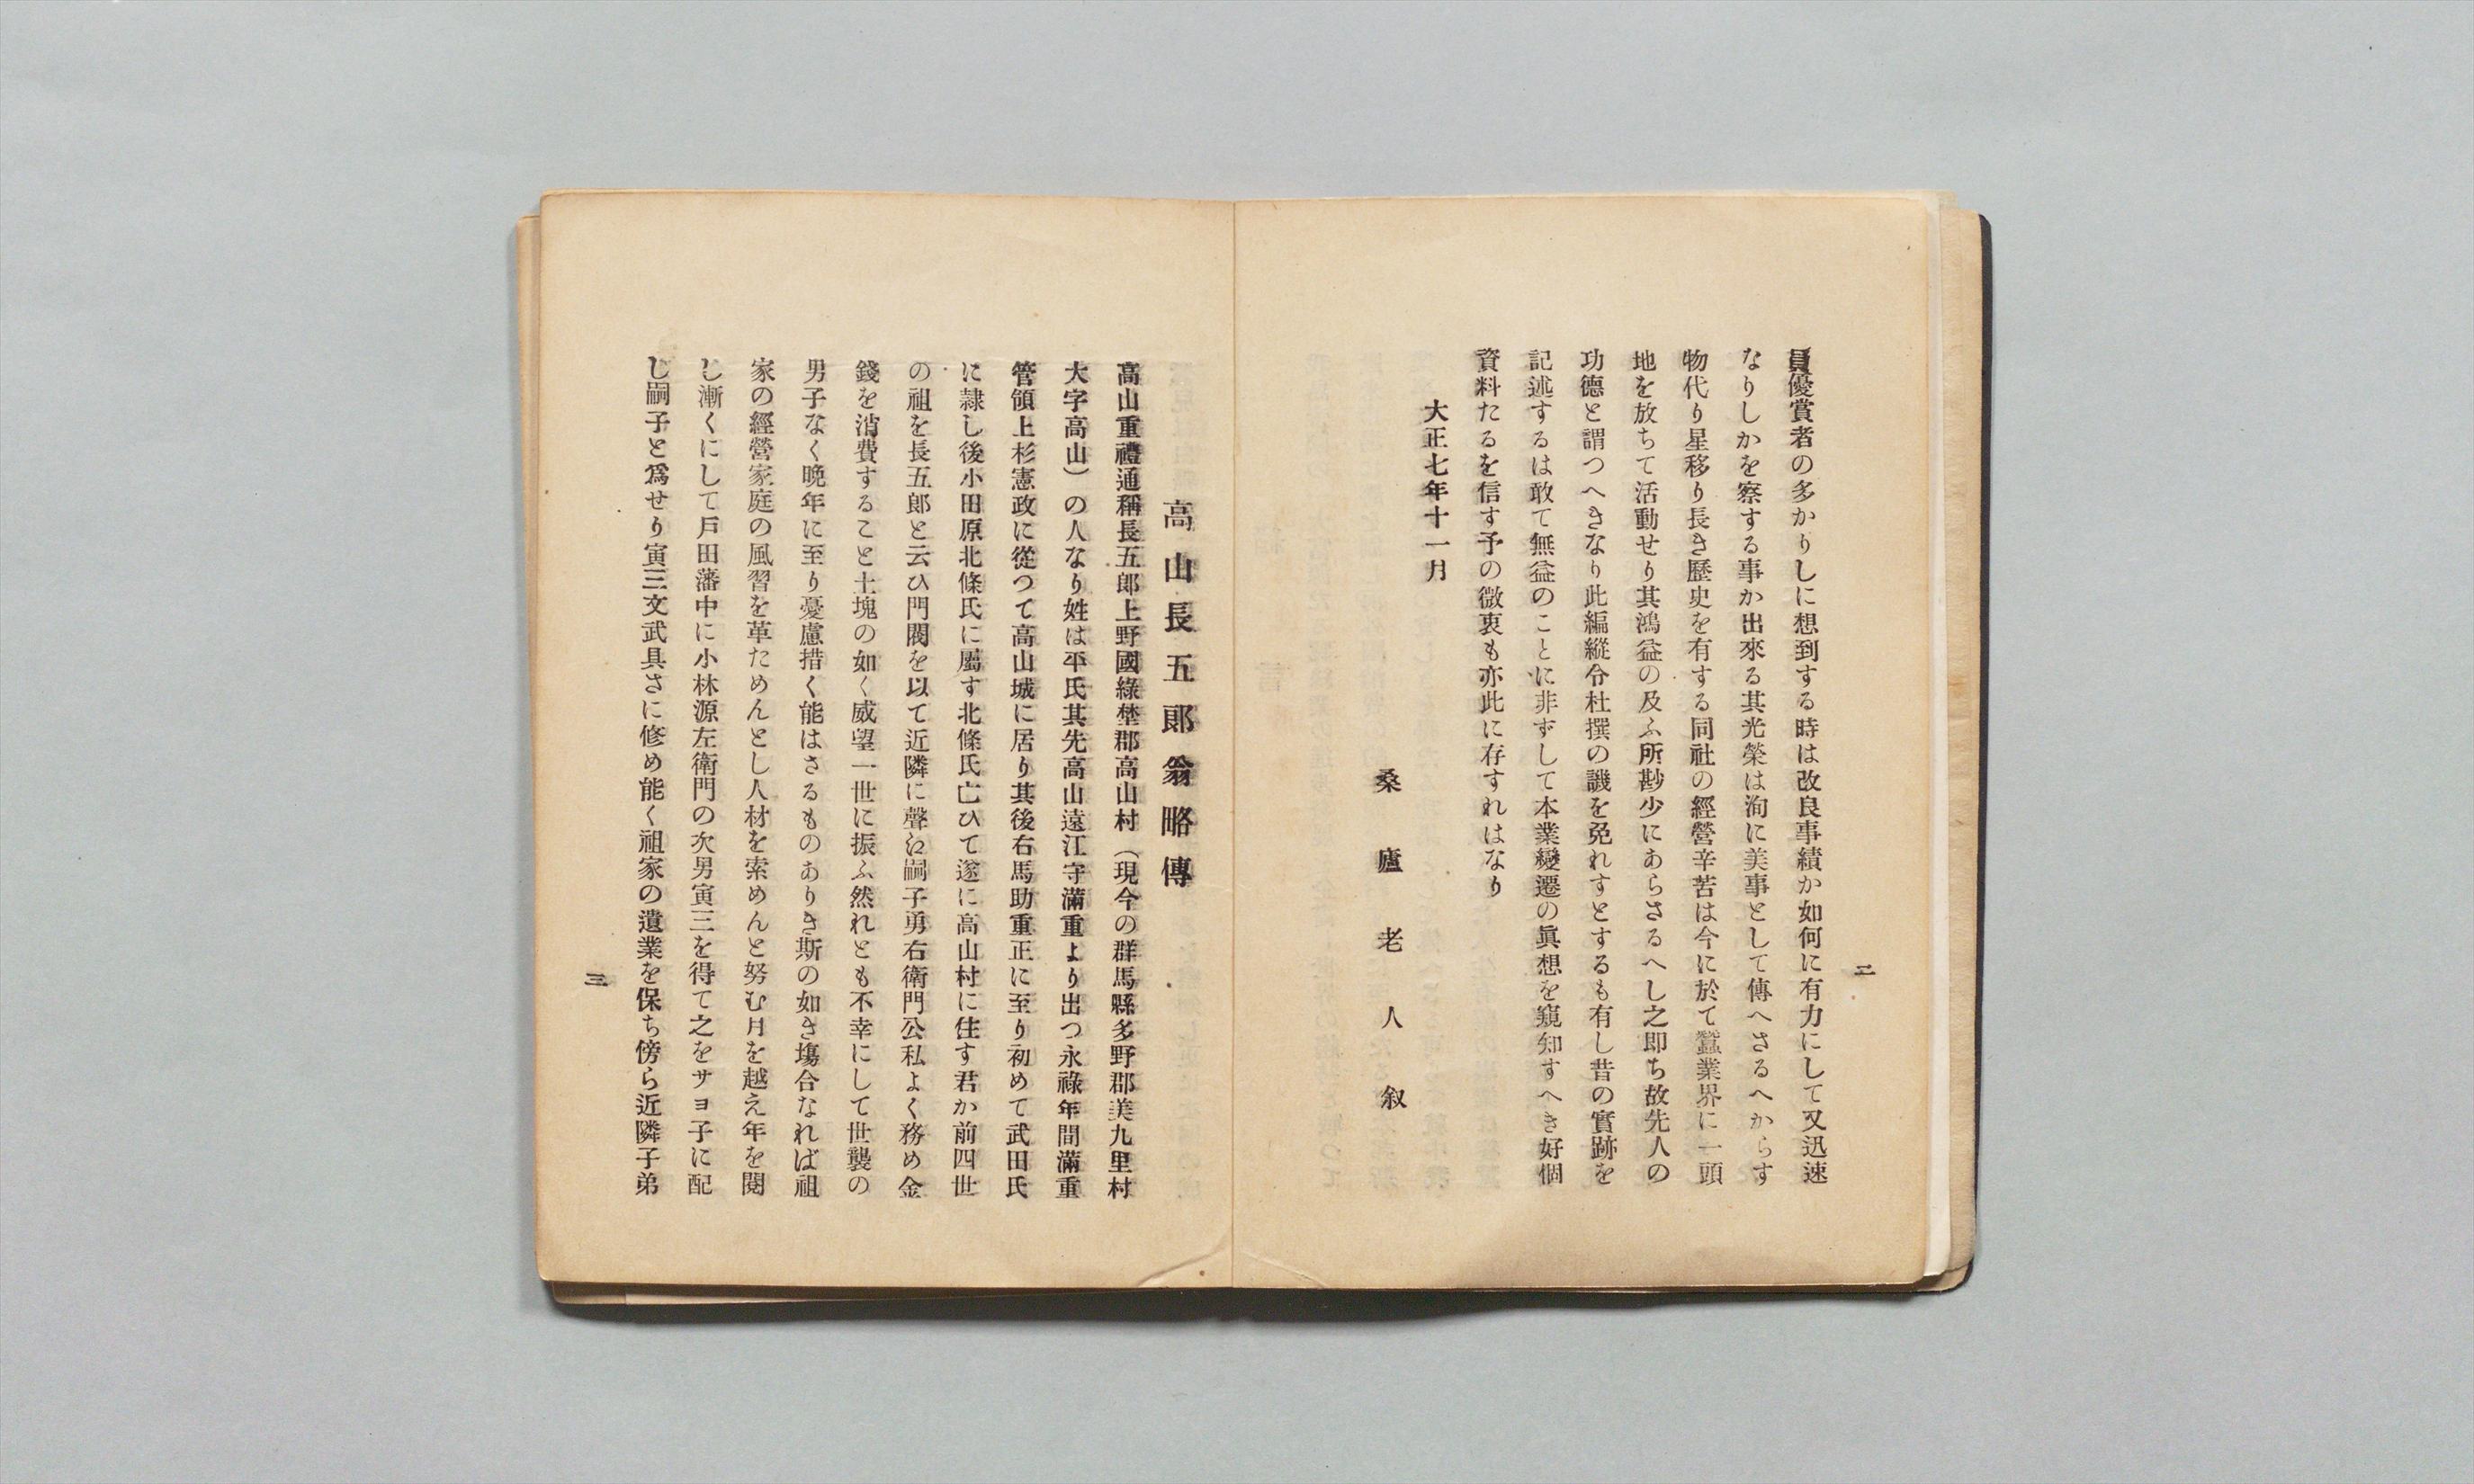 員優賞者の多かりしに想到する時は改良事績か如何に有力にして又迅速
なりしかを察する事か出來る其光榮は洵に美事として傳へさるへからす
物代り星移り長き歷史を有する同社の經營辛苦は今に於て蠶業界に一頭
地を放ちて活動せり其鴻益の及ふ所尠少にあらさるへし之即ち故先人の
功德と謂つへきなり此編縱令杜撰の譏を免れすとするも有し昔の實跡を
記述するは敢て無益のことに非ずして本業變遷の眞想を窺知すへき好個
資料たるを信す予の微衷も亦此に存すれはなり
大正七年十一月
桑廬老人叙
二
高山長五郞翁略傳
高山重禮通稱長五郞上野國綠埜郡高山村（現今の群馬縣多野郡美九里村
大字高山）の人なり姓は平氏其先高山遠江守滿重より出つ永祿年間滿重
管領上杉憲政に從つて高山城に居り其後右馬助重正に至り初めて武田氏
に隷し後小田原北條氏に屬す北條氏亡ひて遂に高山村に住す君か前四世
の祖を長五郞と云ひ門閥を以て近隣に聲ゑ嗣子勇右衛門公私よく務め金
錢を消費すること土塊の如く威望一世に振ふ然れとも不幸にして世襲の
男子なく晩年に至り憂慮措く能はさるものありき斯の如き塲合なれば祖
家の經營家庭の風習を革ためんとし人材を索めんと努む月を越え年を閱
し漸くにして戸田藩中に小林源左衛門の次男寅三を得て之をサヨ子に配
し嗣子と爲せり寅三文武具さに修め能く祖家の遺業を保ち傍ら近隣子弟
三